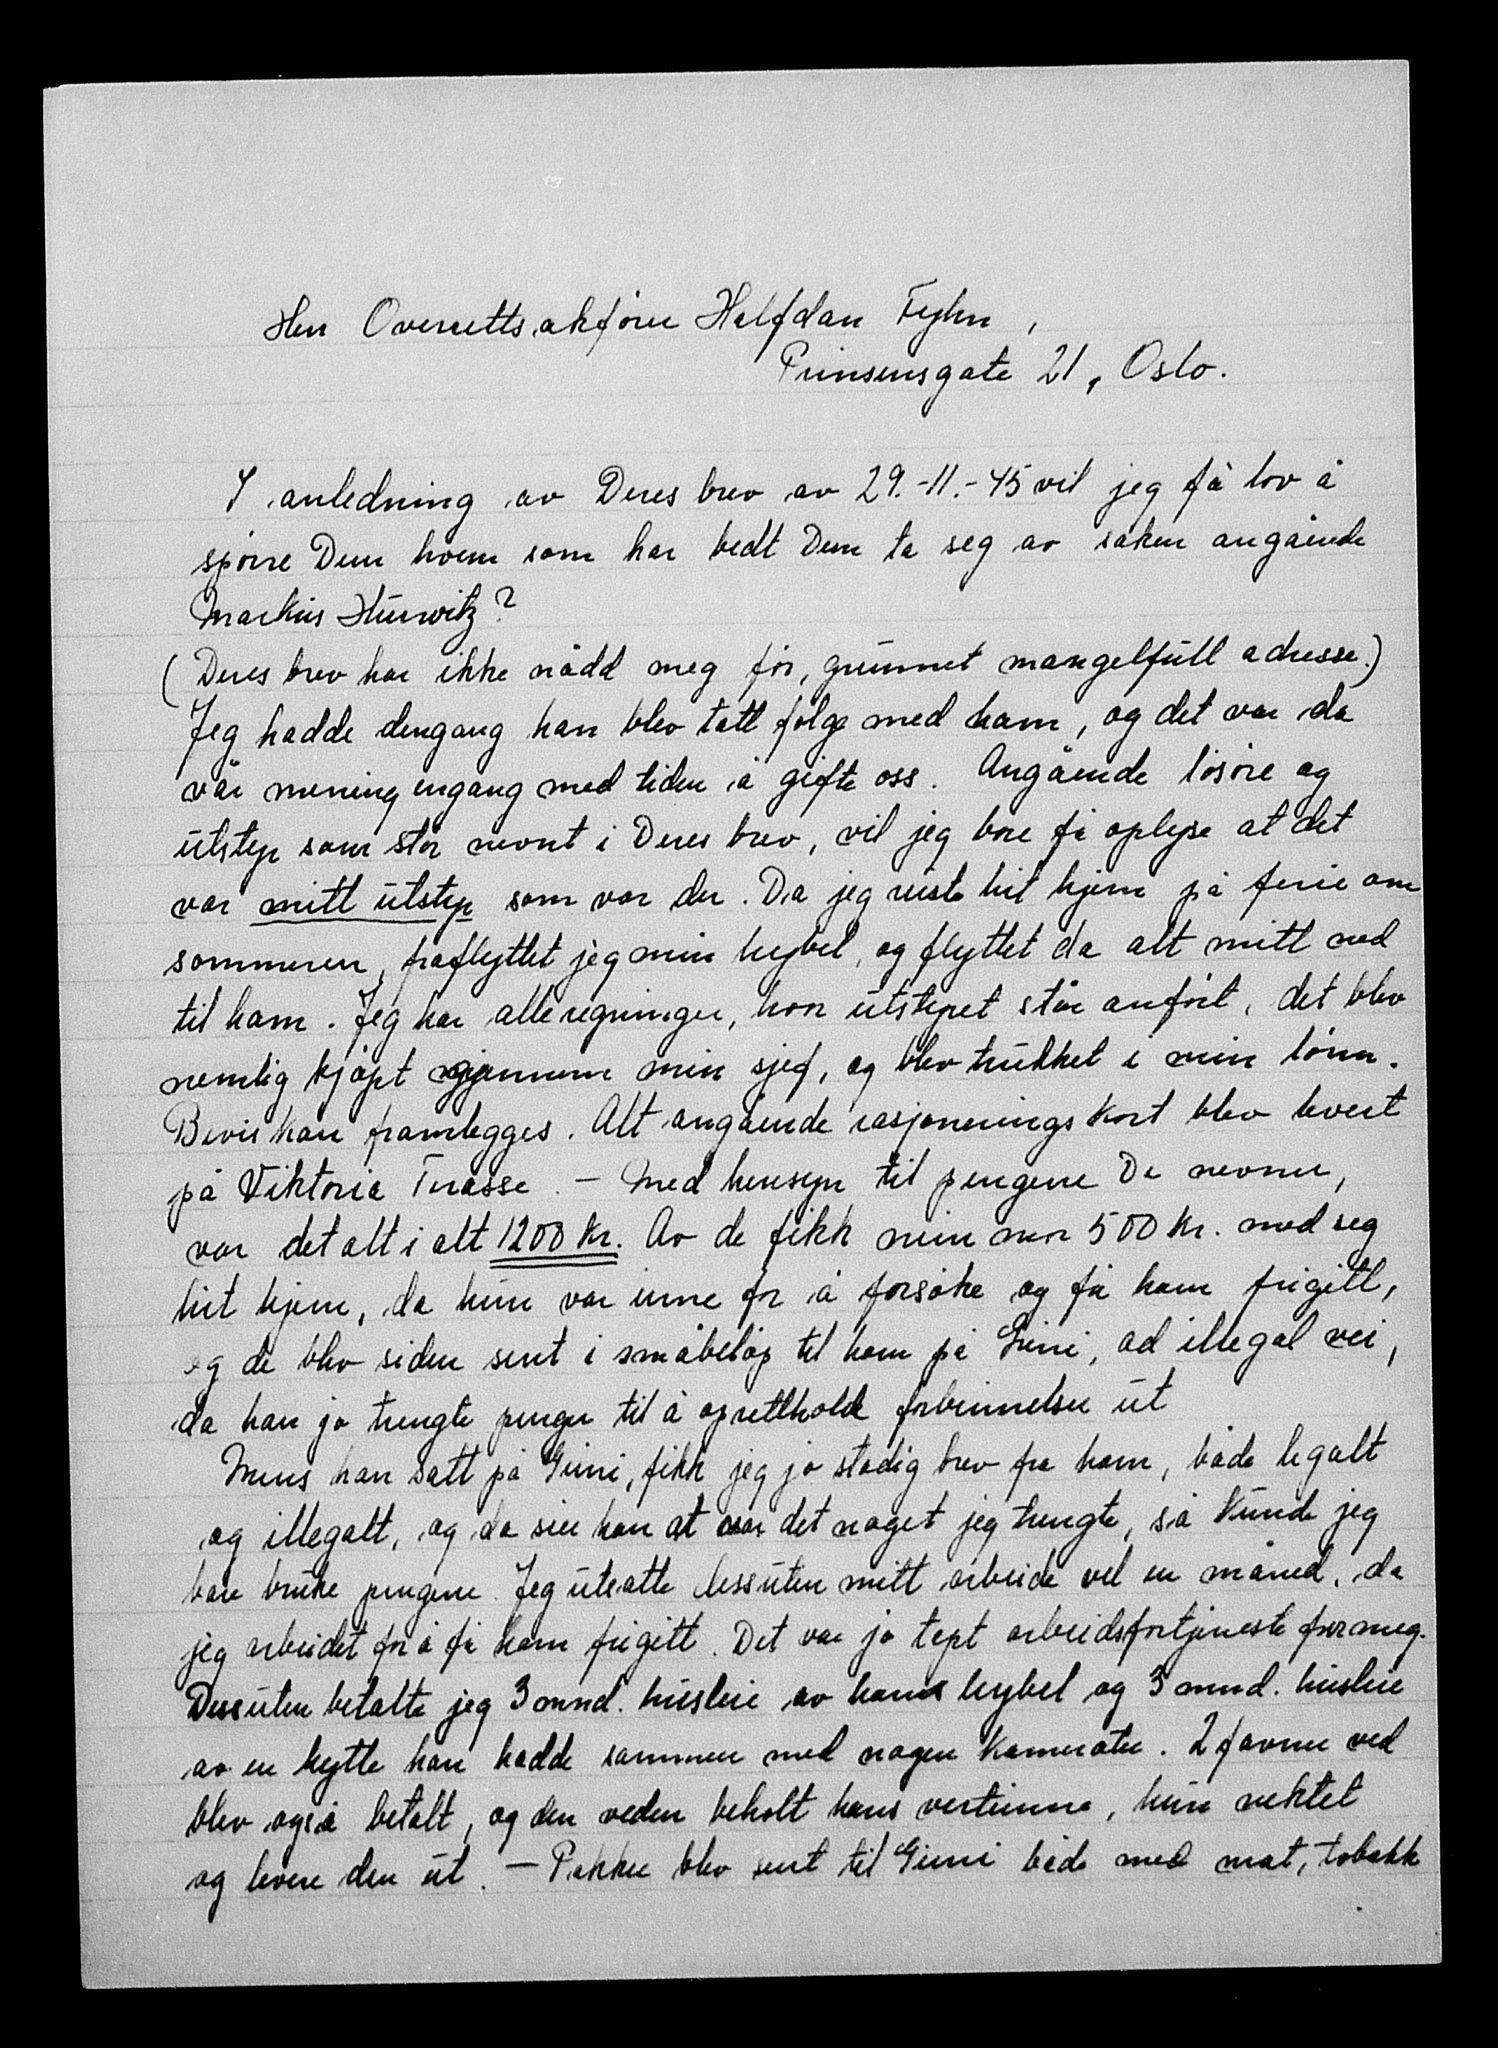 Herr Overrettssakfører Halfdan Feyhn,
Prinsensgate 21, Oslo.
I anledning av Deres brev av 29.-11.-45 vil jeg få lov å
spørre Dem hvem som har bedt Dem ta seg av saken angående
Markus Hurwitz?
(Deres brev har ikke nådd meg før, grunnet mangelfull adresse.)
Jeg hadde dengang han blev tatt følge med ham, og det var da
vår mening engang med tiden å gifte oss. Angående løsøre og
utstyr som står nevnt i Deres brev, vil jeg bare få oplyse at det
var mitt utstyr som var der. Da jeg reiste hit hjem på ferie om
sommeren, fraflyttet jeg min hybel, og flyttet da alt mitt ned
til ham. Jeg har alle regninger, hvor utstyret står anført, det blev
nemlig kjøpt gjennem min sjef, og blev trukket i min lønn.
Bevis kan framlegges. Alt angående rasjoneringskort blev levert
på Viktoria Terasse. - Med hensyn til pengene De nevner,
var det alt i alt 1200 kr. Av de fikk min mor 500 kr. med seg
hit hjem, da hun var inne for å forsøke og få ham frigitt,
og de blev siden sent i småbeløp til ham på Grini, ad illegal vei,
da han jo trengte penger til å oprettholde forbinnelser ut
Mens han satt på Grini, fikk jeg jo stadig brev fra ham, både legalt
og illegalt, og da sier han at var det noget jeg trengte, så kunde jeg
bare bruke pengene. Jeg utsatte dessuten mitt arbeide vel en måned, da
jeg arbeidet for å få ham frigitt. Det var jo tapt arbeidsfortjeneste for meg.
Dessuten betalte jeg 3 mnd. husleie av hans hybel og 3 mnd. husleie
av en hytte han hadde sammen med nogen kamerater. 2 favner ved
blev også betalt, og den veden beholt hans vertinne, hun nektet
og levere den ut. - Pakker blev sent til Grini både med mat, tobakk